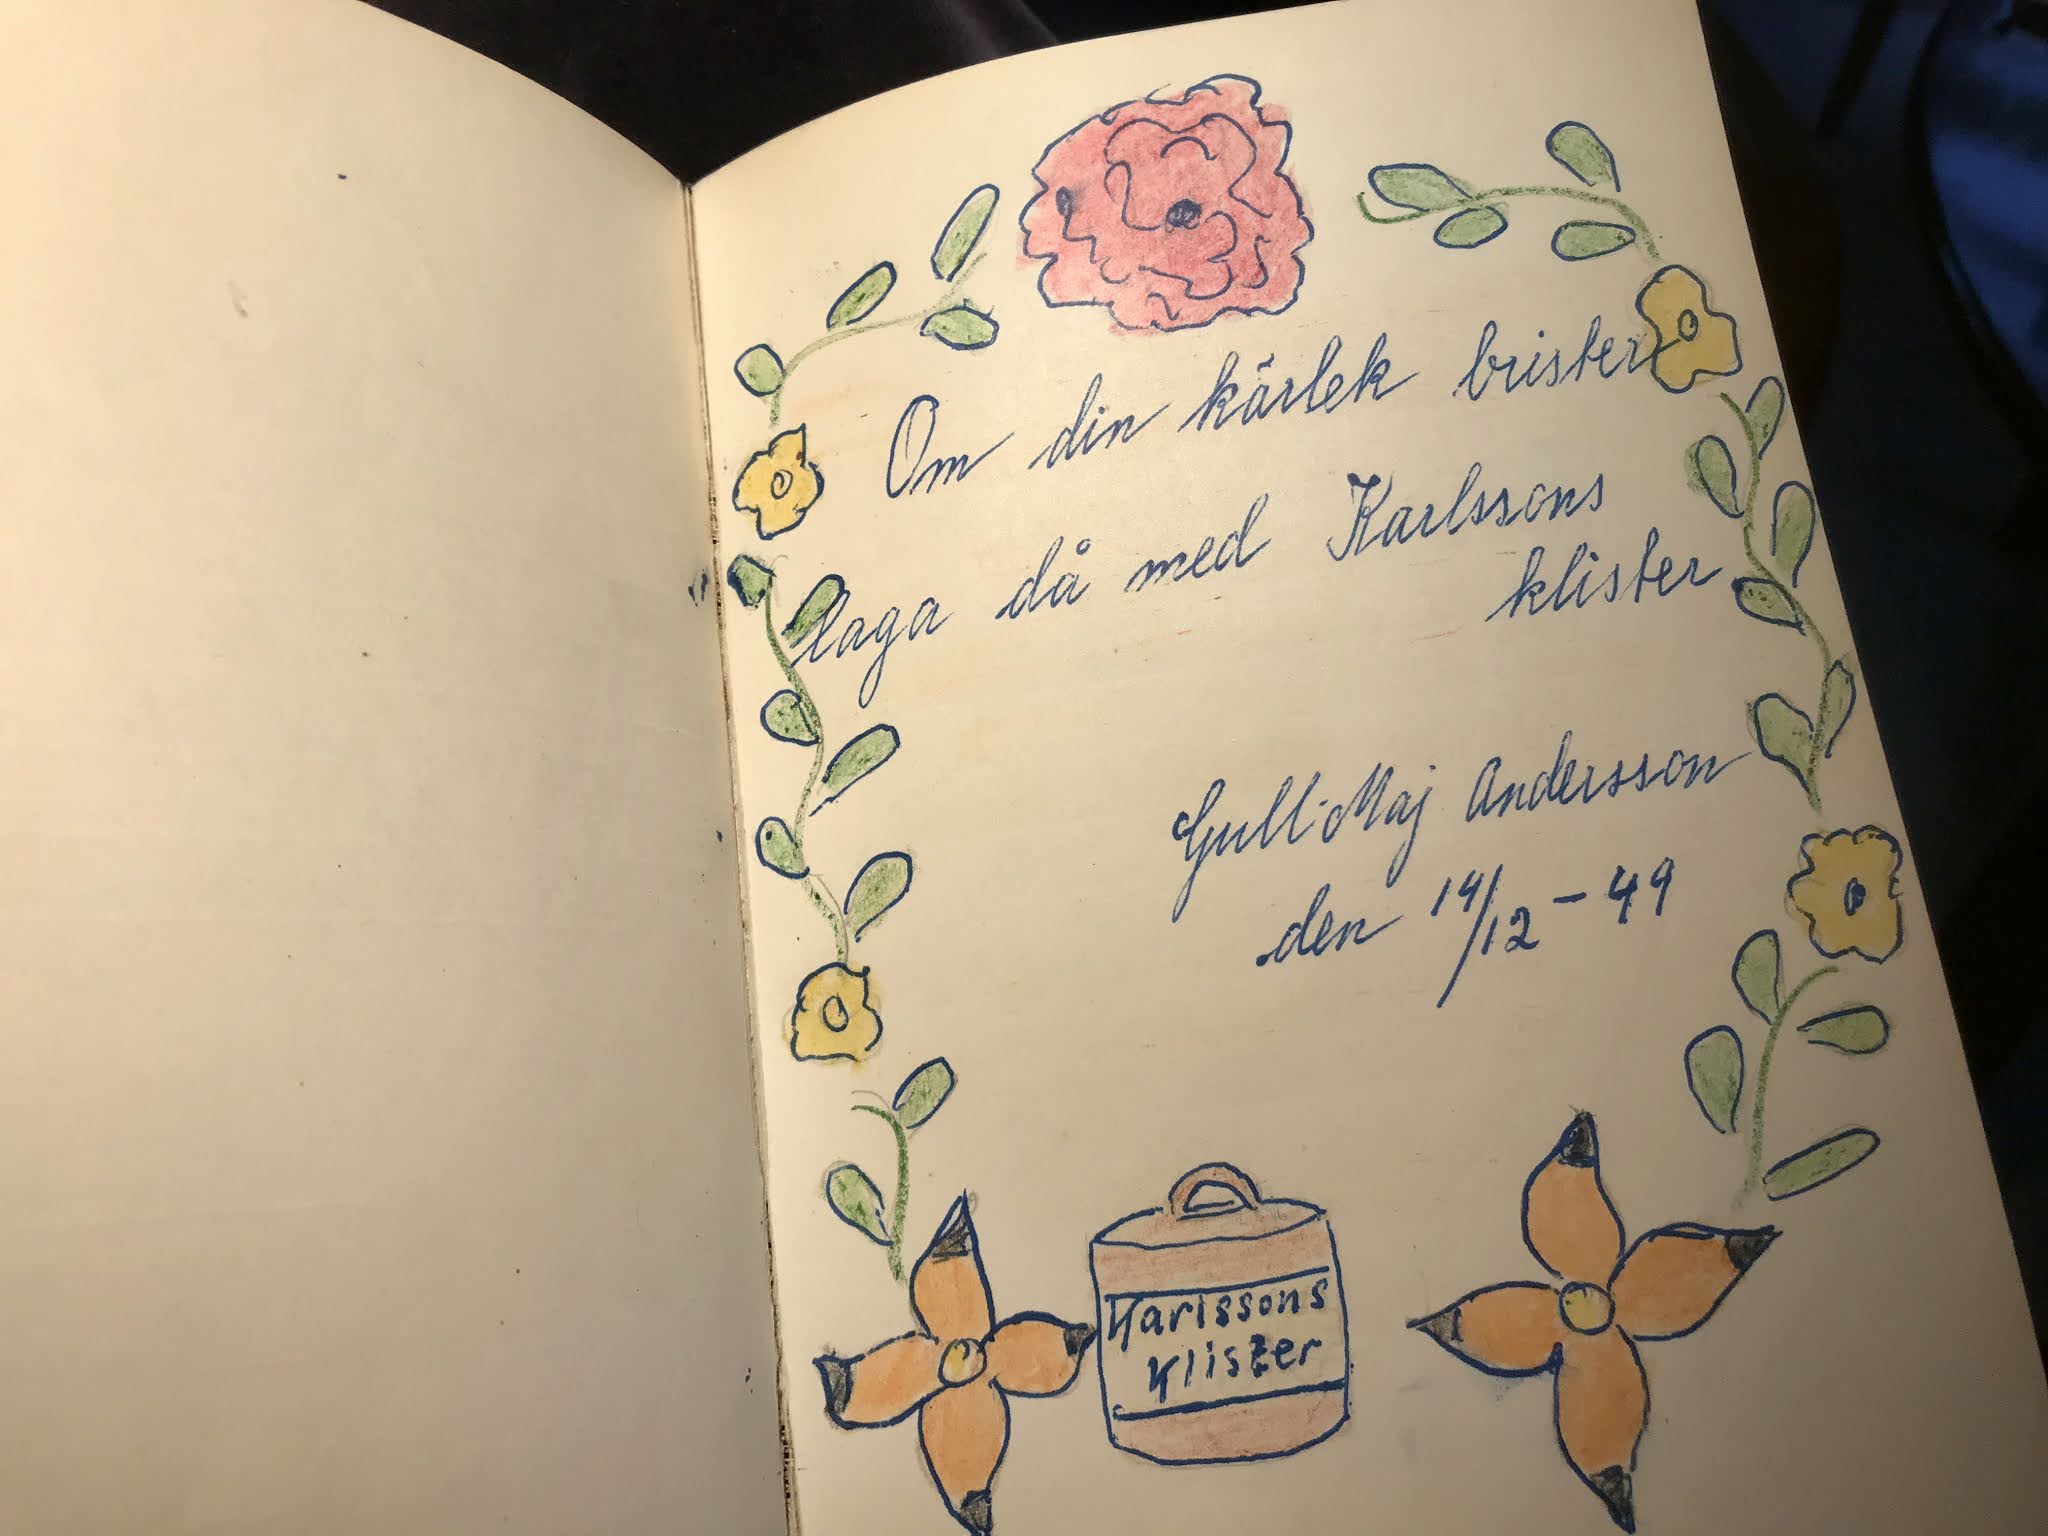 Om din kärlek brister
laga då med Karlssons
klister
Gull-Maj Andersson
den 14/12-49
Karlssons
Klister